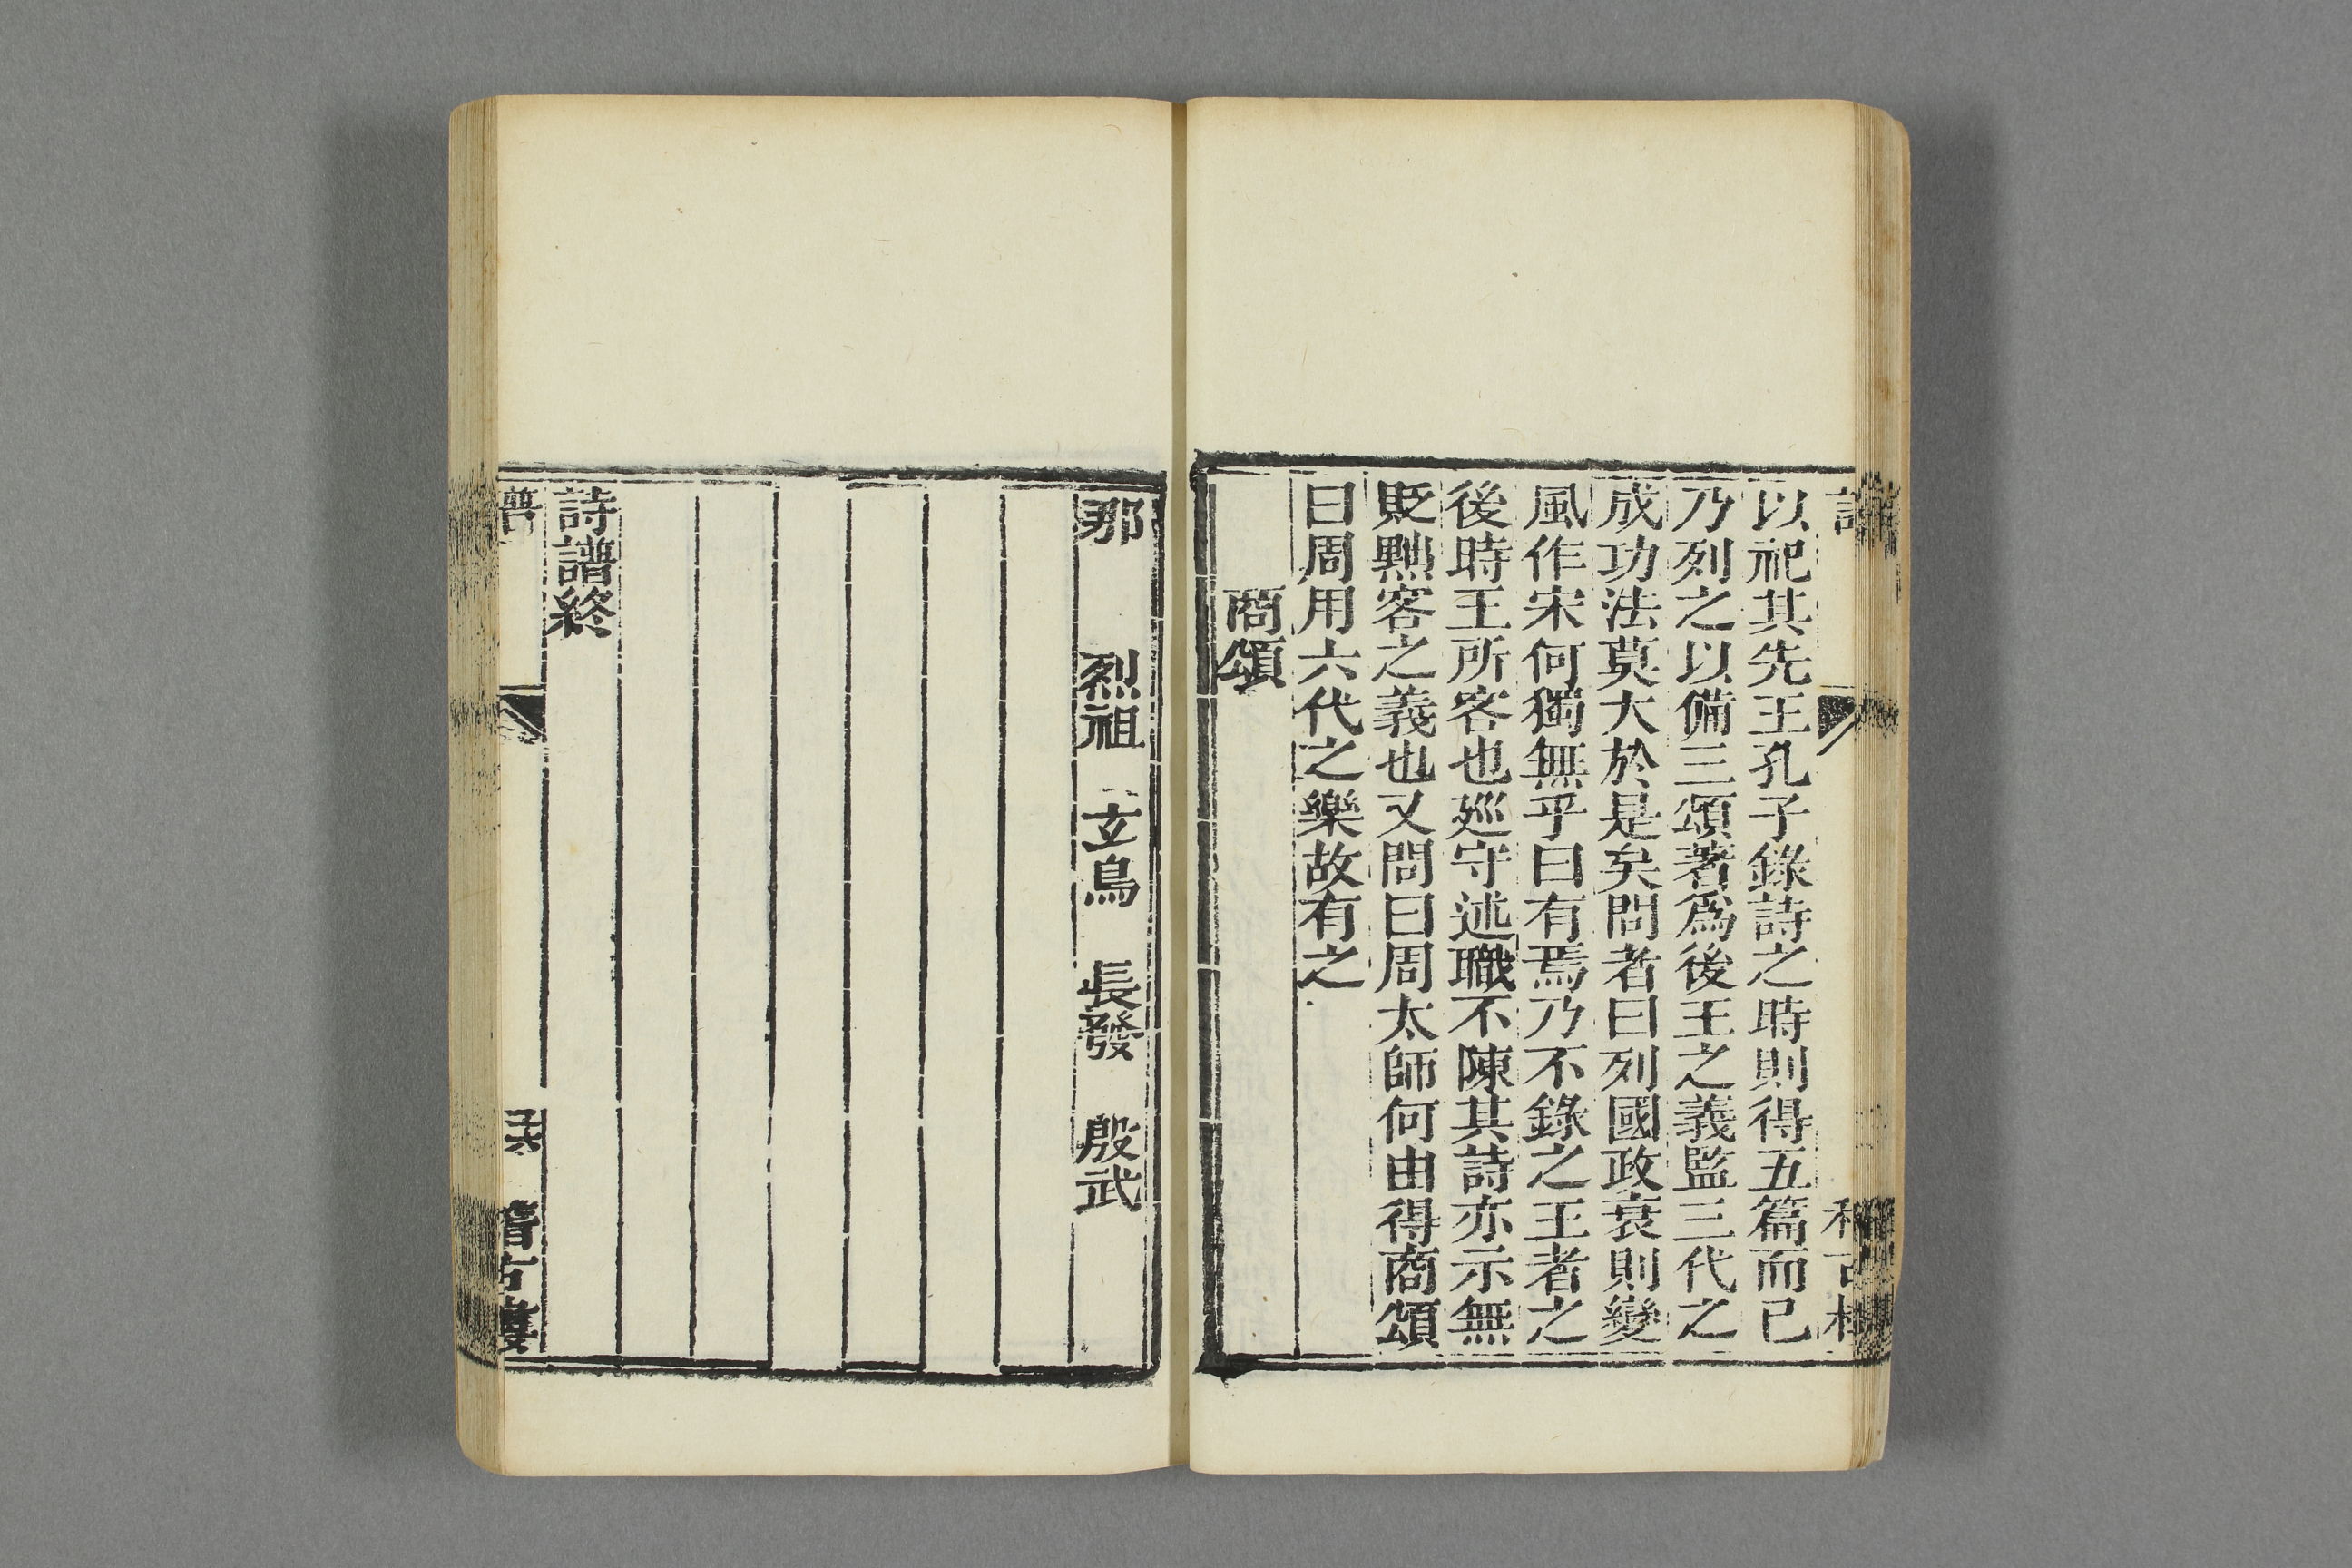 以祀其先王孔子錄詩之時則得五篇而已
乃列之以備三頌著爲後王之義監三代之
成功法莫大於是矣問者曰列國政衰則變
風作宋何獨無乎曰有焉乃不錄之王者之
後時王所客也廵守述職不陳其詩亦示無
貶黜客之義也又問曰周太師何由得商頌
曰周用六代之樂故有之
商頌
那 烈祖 玄鳥 長發 殷武
詩譜終
譜
稽古樓